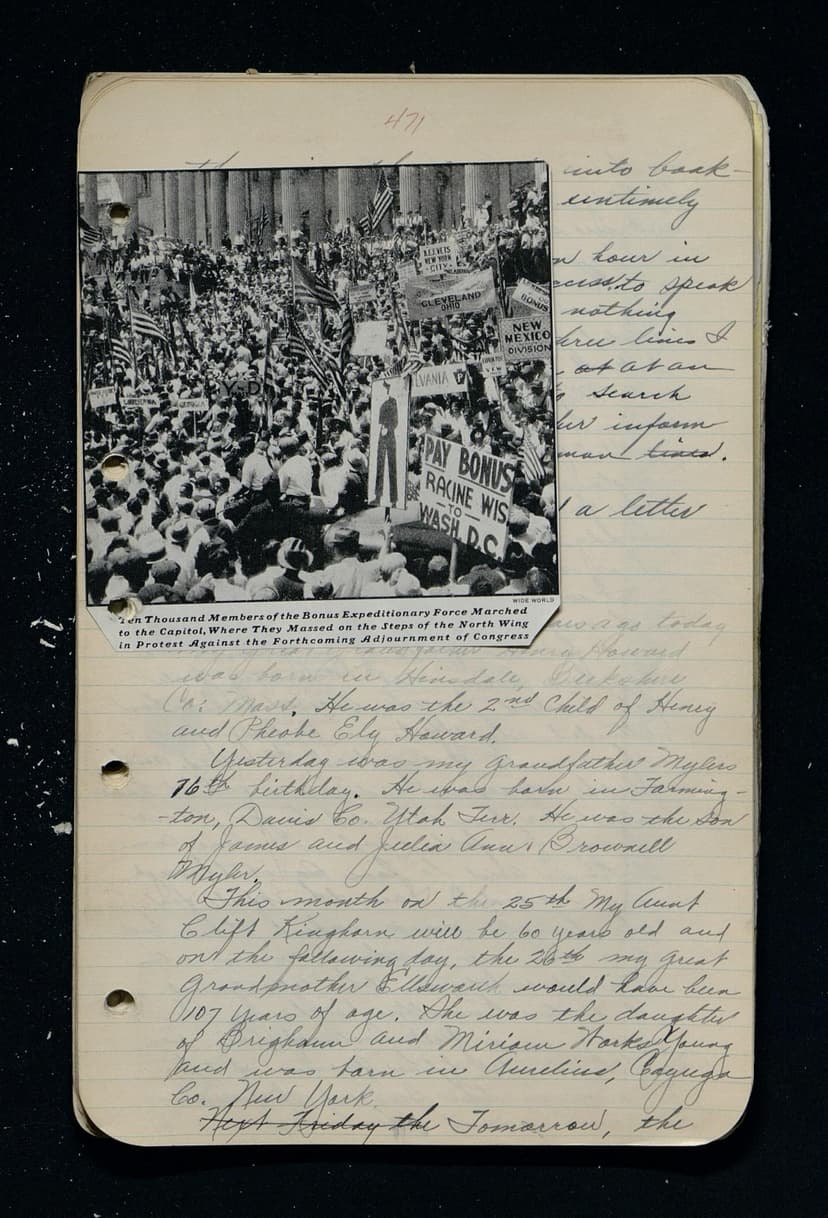 471
into book-
untimely
hour in
to speak
nothing
lines I
at at an
search
inform
man lines.
a letter
REEVETS
NEW YORK
CITY
CLEVELAND
OHIO
BONUS
NEW
MEXICO
DIVISION
LVANIA
PAY BONUS
RACINE WIS
TO
WASH. D.C.
WIDE WORLD
Ten Thousand Members of the Bonus Expeditionary Force Marched
to the Capitol, Where They Massed on the Steps of the North Wing
in Protest Against the Forthcoming Adjournment of Congress
ago today
my great grandfather Henry Howard
was born in Hinsdale, Berkshire
Co: Mass. He was the 2nd Child of Henry
and Pheobe Ely Howard.
Yesterday was my Grandfather Mylers
76th birthday. He was born in Farming-
-ton, Davis Co. Utah Terr. He was the son
of James and Julia Ann Brownell
Myler.
This month on the 25th My Aunt
Clift Kinghorn will be 60 years old and
on the following day, the 26th my great
Grandmother Ellsworth would have been
107 years of age. She was the daughter
of Brigham and Miriam Works Young
and was born in Aurelius, Cayuga
Co. New York.
Next Friday the Tomorrow, the